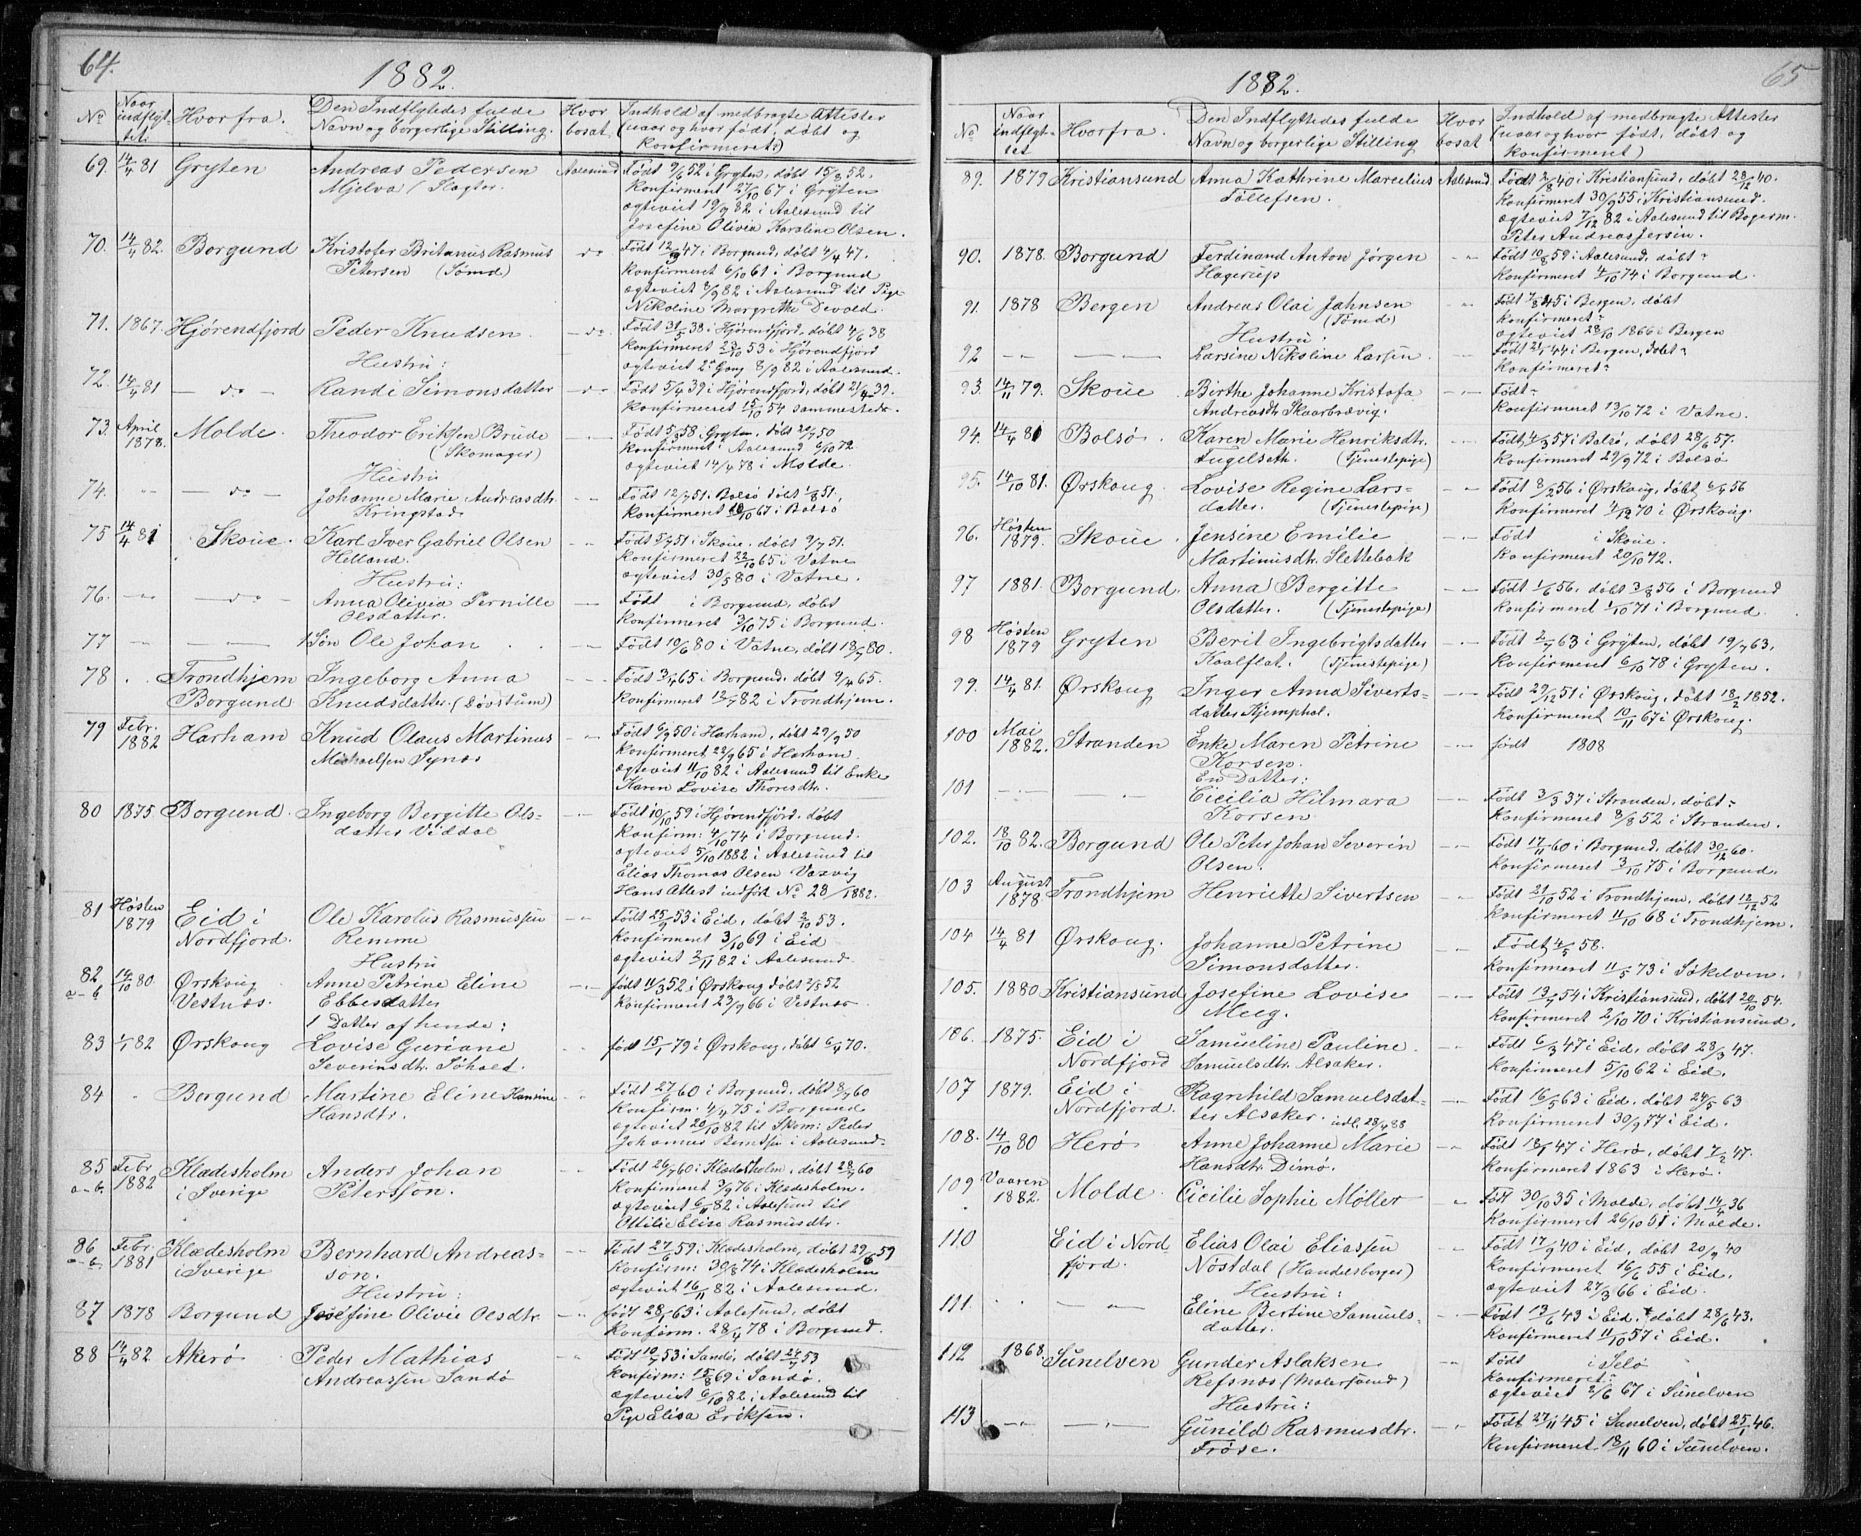 64.
1882.
No
Naar indflyttet
Hvor fra.
Den Indflyttedes fulde Navn og borgerlige Stilling.
Hvor bosat.
Indhold af medbragte Attester (naar og hvor født, døbt og Konfirmeret.)
69. 14/4 81 Gryten Andreas Pedersen Aalesund Født 9/6 52 i Gryten, døbt 15/8 52.
Mjelva / Slagter. Konfirment 27/10 67 i Gryten
ægteviet 19/9 82 i Aalesund til
Josefine Olivia Karoline Olsen.
70. 14/4 82. Borgund Kristofer Britanus Rasmus - do - Født 12/3 47 i Borgund, døbt 4/4 47.
Petersen (Sømd) Konfirment 6/10 61 i Borgund
ægteviet 3/9 82 i Aalesund til Pige
Nikoline Margrethe Devold.
71. 1867. Hjørendfjord Peder Knudsen. - do - Født 31/5 38 i Hjørendfjord, døbt 4/6 38
Konfirmeret 23/10 53 i Hjørendfjord
Hustru: ægteviet 2den Gang 8/9 82 i Aalesund.
72. 14/4 81 - do - Randi Simonsdatter - do - Født 5/4 39 i Hjørendfjord, døbt 21/4 39.
Konfirmeret 15/10 54 sammesteds.
73. April 1878. Molde. Theodor Eriksen Brude - - Født 5/5 58 Gryten, døbt 20/7 50
(Skomager) Konfirmert i Aalesund 6/10 72.
ægteviet 14/4 78 i Molde.
Hustru
74. - - - do - Johanne Marie Andreasdtr. - - Født 12/7 51. Bolsø døbt 1/8 51,
Kringstad Konfirment 20/10 67 i Bolsø
75 14/4 81 Skoue. Karl Iver Gabriel Olsen - - Født 5/7 51 i Skoue. døbt 9/7 51.
Helland. Konfirmeret 22/10 65 i Vatne
Hustru: ægteviet 30/5 80 i Vatne.
76. - - - do - Anna Olivia Pernille - - Født i Borgund, døbt
Olsdatter. Konfirment 3/10 75 i Borgund.
77 - - - - 1 Søn Ole Johan - - Født 10/6 80 i Vatne, døbt 18/7 80.
78 Trondhjem Ingeborg Anna - - Født 3/4 65 i Borgund, døbt 9/4 65.
Borgund Knudsdatter. (Døvstum) Konfirment 12/7 82 i Trondhjem.
79 Febr. 1882 Harham Knud Olaus Martinus - - Født 6/9 50 i Harham, døbt 29/9 50
Michaelsen Synes Konfirment 22/9 65 i Harham
ægteviet 11/10 82 i Aalesund til Enke
Karen Lovise Thoresdtr.
80 1875 Borgund. Ingeborg Bergitte Ols- - - Født 10/10 59 i Hjørendfjord. døbt
datter Viddal Konfirm: 4/10 74 i Borgund.
ægteviet 5/10 1882 i Aalesund til
Elias Thomas Olsen Vaxvig
Hans Attest indført No 28 / 1882.
81 Høsten 1879 Eid i Ole Karolus Rasmussen - - Født 25/9 53 i Eid, døbt 2/10 53.
Nordfjord. Remme Konfirment 3/10 69 i Eid
Hustru ægteviet 2/11 82 i Aalesund.
82 a-b 14/10 80 Ørskoug Anne Petrine Eline - - født 11/3 52 i Ørskoug døbt 2/5 52
Vestnæs. Ebbesdatter Konfirment 23/9 66 i Vestnæs
1 Datter af hende:
83 1/1 82 Ørskoug Lovise Guriane - - født 15/1 79 i Ørskoug, døbt 6/4 70.
Severinsdtr. Søholt.
84 Borgund Martine Eline Hansine - - Født 27/6 60 i Borgund, døbt 8/7 60
Hansdtr. Konfirm. 4/4 75 i Borgund
ægteviet 20/10 82 til Skom: Peder
Johannes Berntsen i Aalesund.
85 a-b. Febr 1882 Klædesholm Anders Johan - - Født 26/7 60 i Klædesholm, døbt 28/7 60
i Sverige Petersson. Konfirment 3/9 76 i Klædesholm.
ægteviet 6/11 82 i Aalesund til
Ottilie Elise Rasmusdtr.
86 a-b. Febr. 1881 Klædesholm Bernhard Andreas- - - Født 27/6 59 i Klædesholm, døbt 29/6 59
i Sverige søn. Konfirm: 30/8 74 i Klædesholm
Hustru: ægteviet 16/11 82 i Aalesund.
87 1878 Borgund Josefine Olivie Olsdtr. - - født 28/1 63 i Aalesund, døbt
Konfirm. 28/4 78 i Borgund.
88 14/4 82 Akerø Peder Mathias - - Født 10/7 53 i Sandø, døbt 24/7 53
Andreassen Sandø Konfirm: 15/8 69 i Sandø.
ægteviet 6/10 82 i Aalesund til
Pige Elisa Eriksen.
65
1882.
No.
Naar indflyttet
Hvor fra.
Den Indflyttedes fulde Navn og borgerlige Stilling
Hvor bosat
Indhold af medbragte Attester (naar og hvor født, døbt og Konfirment)
89. 1879 Kristiansund Anna Kathrine Marcelius Aalesund Født 2/8 40 i Kristiansund, døbt 28/12 40.
Tollefsen. Konfirmeret 30/9 55 i Kristiansund.
ægteviet 7/12 82 i Aalesund til Bagerm.
Peter Andreas Jersin.
90. 1878. Borgund Ferdinand Anton Jørgen - - Født 10/8 59 i Aalesund, døbt -
Hagerup Konfirment 4/10 74 i Borgund.
91. 1878 Bergen Andreas Olai Jahnsen - - født 7/8 45 i Bergen, døbt
(Tømd) Konfirment -
Hustru: ægteviet 28/10 1866 i Bergen
92 - - - - Larsine Nikoline Larsen - - Født 21/1 44 i Bergen, døbt -
Konfirmeret -
93. 14/11 79. Skoue Birthe Johanne Kristofa - - Født -
Andreasdtr Skaarbrævig. Konfirment 13/10 72 i Vatne.
94. 14/4 81 Bolsø. Karen Marie Henriksdtr. - - Født 4/3 57 i Bolsø, døbt 28/6 57.
Fugelseth. (Tjenestepige) Konfirmeret 29/9 72 i Bolsø
95. 14/10 81. Ørskoug. Lovise Regine Lars- - - Født 8/2 56 i Ørskoug, døbt 6/4 56
datter. (Tjenestepige) Konfirment 2/10 70 i Ørskoug.
96. Høsten 1879. Skoue. Jensine Emilie - - Født i Skoue.
Martinusdtr. Slettebak Konfirment 20/10 72.
97 1881. Borgund. Anna Bergitte - - Født 1/6 56, døbt 3/8 56 i Borgund
Olsdatter. (Tjenestepige) Konfirment 1/10 71 i Borgund.
98 Høsten 1879 Gryten Berit Ingebrigtsdatter - - Født 2/7 63 i Gryten, døbt 19/7 63,
Kaalflat. (Tjenestepige) Konfirment 6/10 78 i Gryten.
99. 14/4 81. Ørskoug Inger Anna Siverts- - - Født 29/12 51 i Ørskoug, døbt 18/2 1852.
datter Kjemphol. Konfirment 10/11 67 i Ørskoug.
100 Mai 1882. Stranden Enke Maren Petrine - - født 1808
Korsen.
En Datter:
101 - - - - Cicilia Hilmara - - Født 3/3 37 i Stranden, døbt -
Korsen Konfirment 8/8 52 i Stranden.
102. 18/10 82. Borgund Ole Peter Johan Severin - - Født 17/11 60 i Borgund, døbt 30/12 60.
Olsen. Konfirment 3/10 75 i Borgund.
103 August 1878 Trondhjem Henriette Sivertsen - - Født 21/10 52 i Trondhjem, døbt 12/12 52
Konfirmeret 11/10 68 i Trondhjem.
104 14/4 81 Ørskoug. Johanne Petrine - - Født 4/5 58.
Simonsdatter. Konfirmeret 11/5 73 i Søkelven.
105. 1880. Kristiansund Josefine Lovise - - Født 13/7 54 i Kristiansund, døbt 20/10 54.
Meeg. Konfirmeret 2/10 70 i Kristiansund.
106. 1875. Eid i Samueline Pauline. - - Født 6/3 47 i Eid, døbt 28/3 47.
Nordfjord Samuelsdtr. Alsaker. Konfirmeret 5/10 62 i Eid.
107 1879. Eid i Ragnhild Samuelsdat- - - Født 16/5 63 i Eid, døbt 24/5 63
Nordfjord. ter Alsaker. udl. 28/4 88 Konfirmeret 30/9 77 i Eid.
108. 14/10 80 Herø Anne Johanne Marie - - Født 18/1 47 i Herø, døbt 7/2 47.
Hansdtr. Dimø. Konfirment 1863 i Herø.
109. Vaaren 1882. Molde. Cicilie Sophie Møller - - Født 30/10 35 i Molde, døbt 14/4 36
Konfirmeret 26/10 51 i Molde.
110 Eid i Nord- Elias Olai Eliassen - - Født 17/9 40 i Eid, døbt 20/9 40
fjord. Nøstdal (Handelsborger) Konfirment 16/6 55 i Eid.
Hustru: ægteviet 27/3 66 i Eid.
111. - - Eline Bertine Samuels- - - Født 13/6 43 i Eid, døbt 28/6 43.
datter. Konfirmeret 11/10 57 i Eid.
112 1868. Sunelven Gunder Aslaksen - - Født i Selø
Refsnæs (Malersvend) Konfirmeret -
Hustru: ægteviet 2/6 67 i Sunelven
113 - - - - Gunild Rasmusdtr. - - Født 27/11 45 i Sunelven, døbt 25/1 46.
Frøse. Konfirment 18/11 60 i Sunelven.